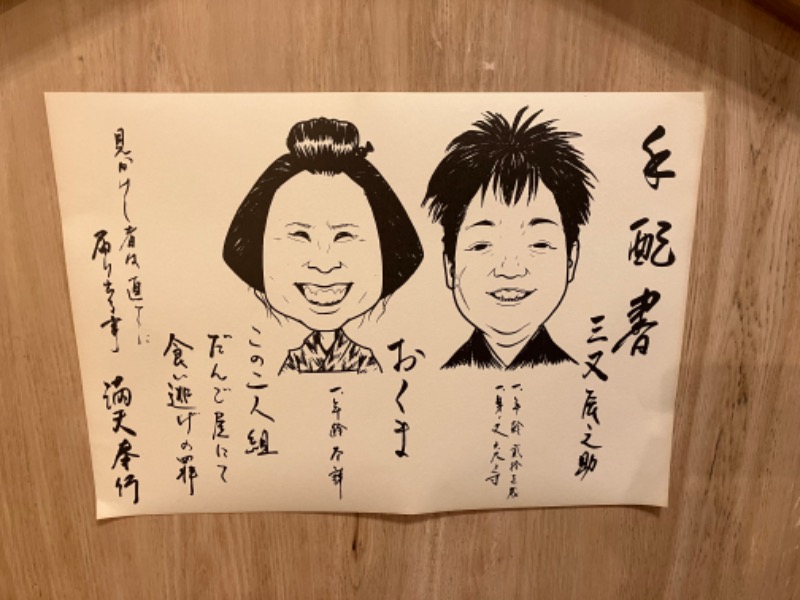 手配書
三又辰之助
一、年齢 弐拾
一、身ノ丈
おくま
一、年齢 不詳
この二人組
だんご屋にて
食い逃げの罪
見かけし者は、直ぐに
届け出る事
満天奉行